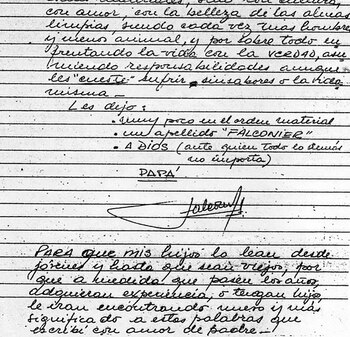 con amor, con la belleza de las almas
limpias siendo cada vez más hombre
y menos animal, y por sobre todo en-
frentando la vida con la VERDAD, asu
miendo responsabilidades aunque
les "cueste" sufrir, sinsabores o la vida
misma -
Les dejo:
• muy poco en el orden material
• un apellido "FALCONIER"
• A DIOS (ante quien todo lo demás
no importa)
PAPÁ
Para que mis hijos lo lean desde
jóvenes y hasta que sean viejos, por
que a medida que pasen los años,
adquieran experiencia, o tengan hijos,
le irán encontrando nuevo y más
significado a estas palabras que
escribí con amor de padre -